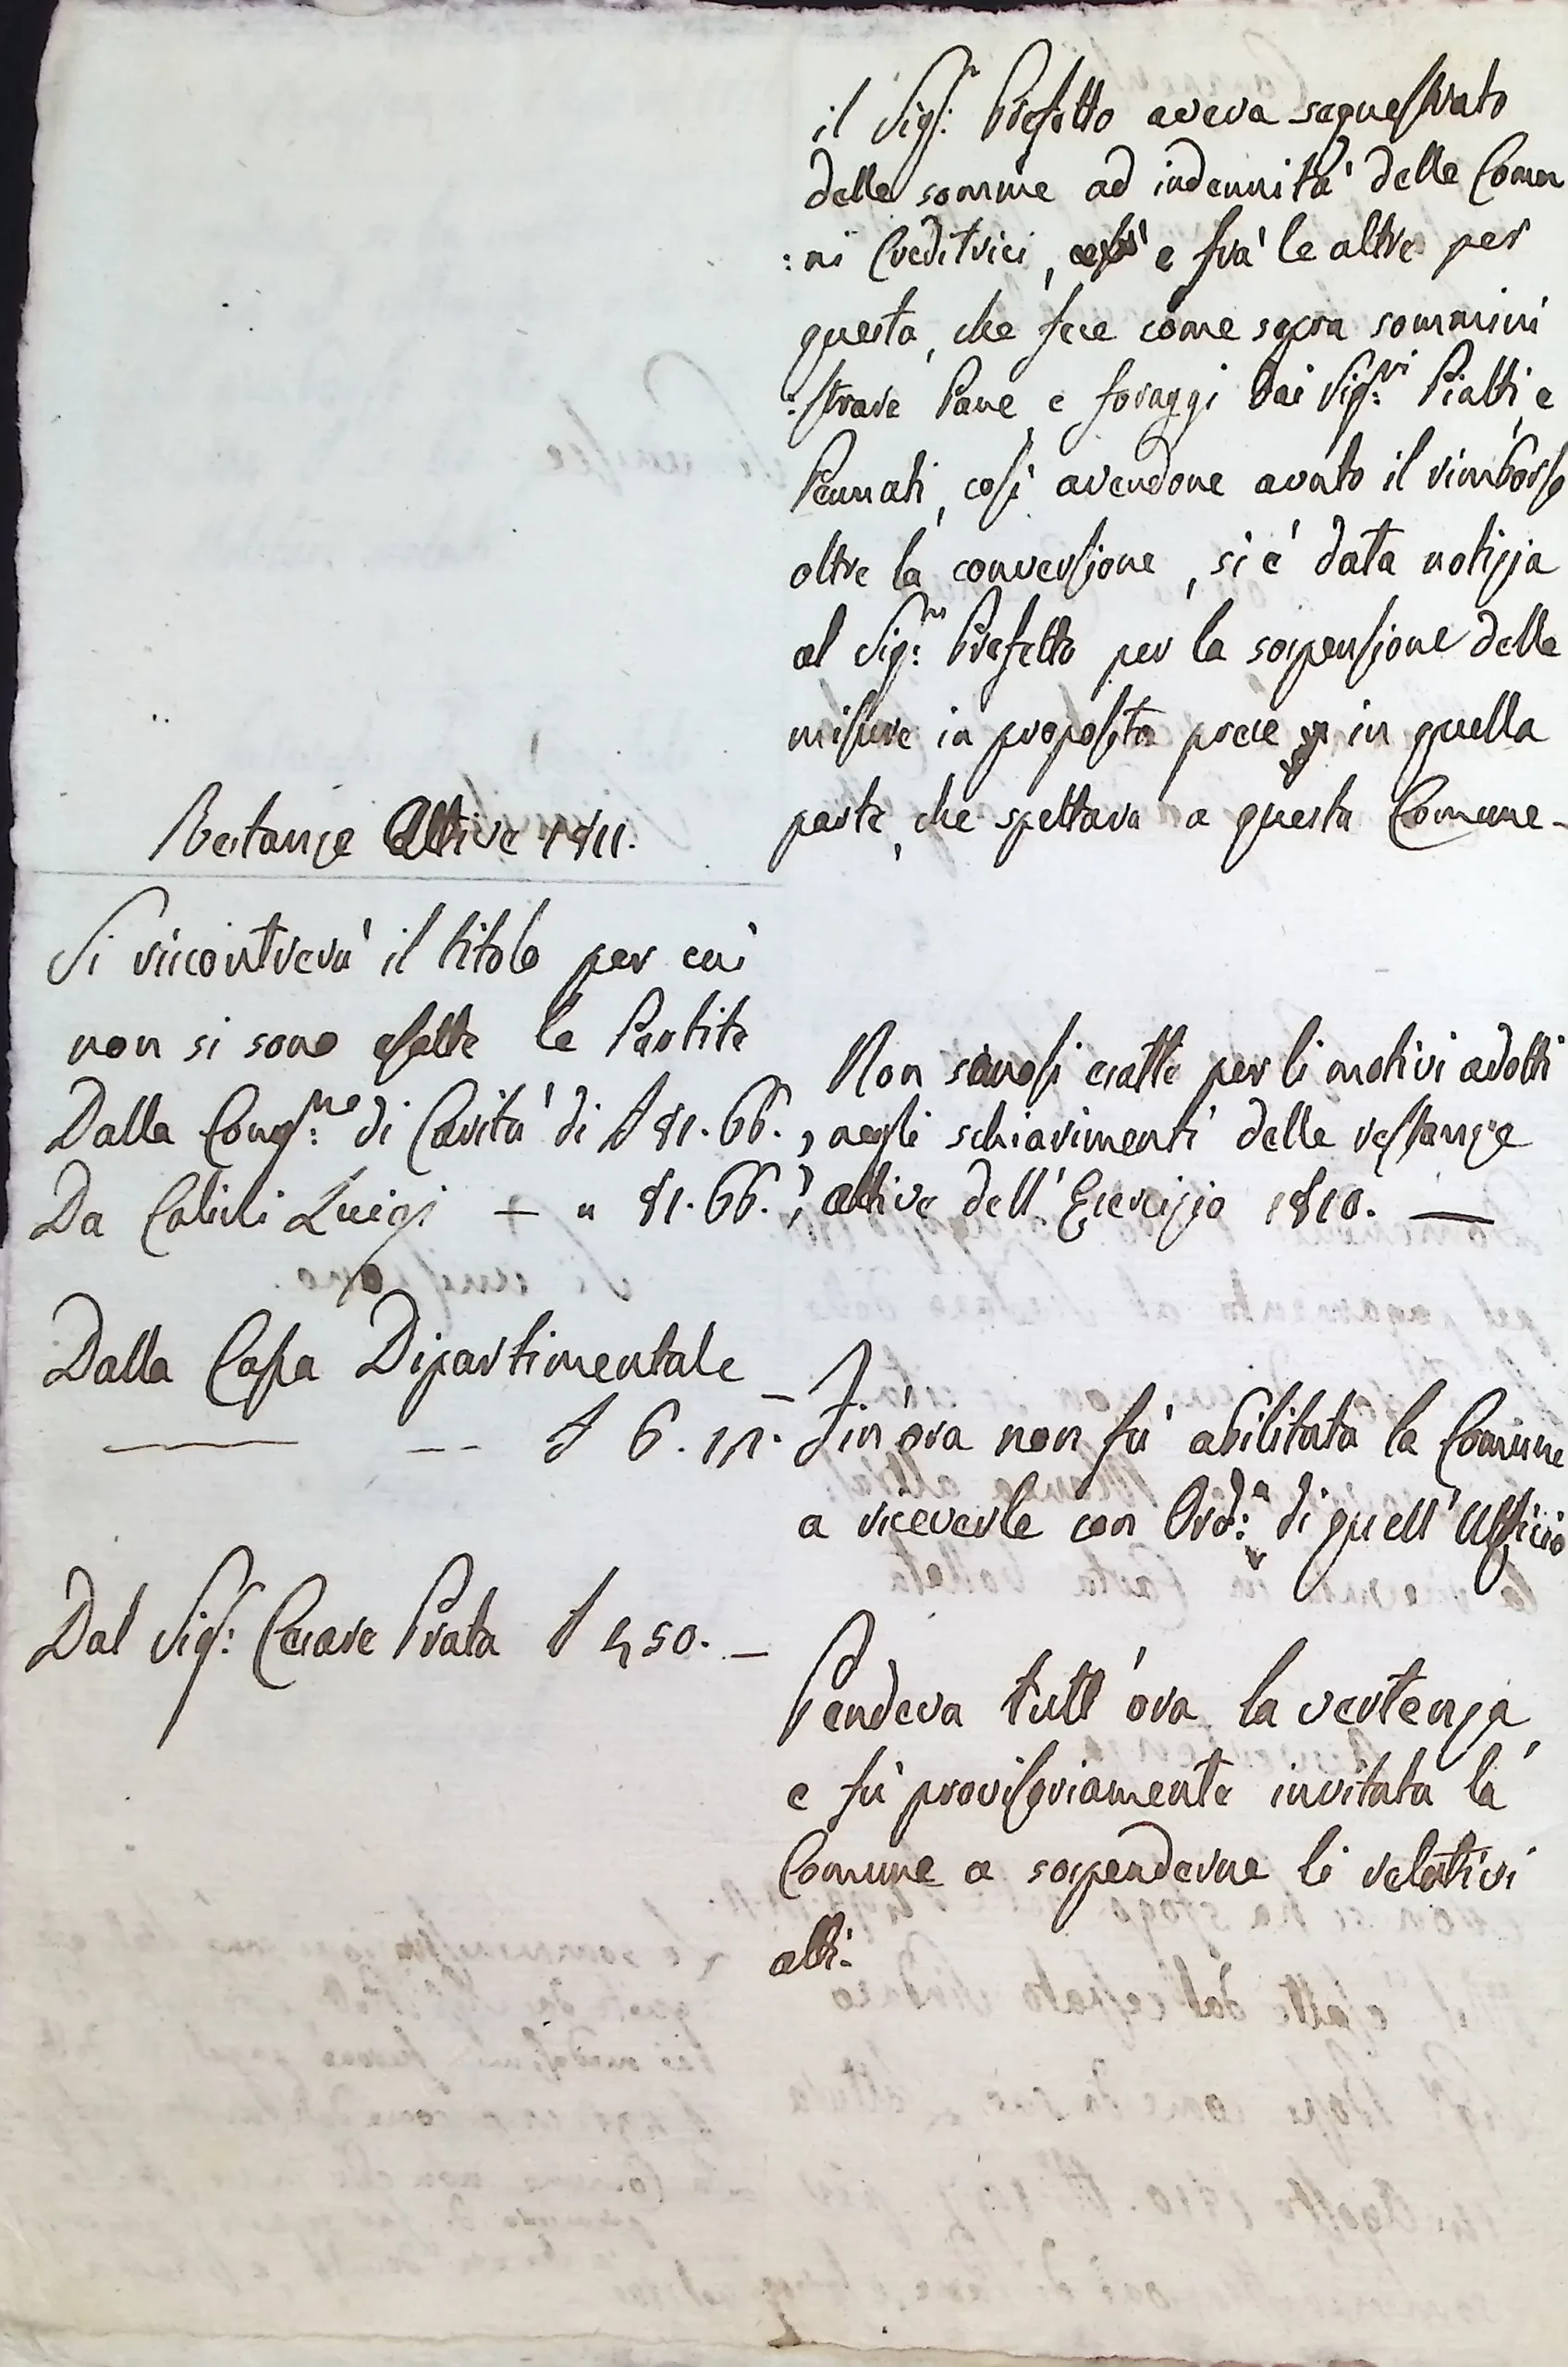 il Sig.r Prefetto aveva sequestrato
delle somme ad indennità delle Comu
:ni Creditrici, e frà le altre per
questa, che fece come sopra sommini
:strare Pane e foraggi dai Sig.ri Pialti, e
Pennati, così avendone avuto il rimborso
oltre la conversione, si è data notizia
al Sig.r Prefetto per la sospensione delle
misure in proposito prese in quella
parte, che spettava a questa Comune -
Restanze Attive 1811.
Si riscontrerà il titolo per cui
non si sono esatte le Partite
Dalla Cong.ne di Carità di £ 81.66.
Da Calini Luigi — " 81.66.
Non sonosi esatte per li motivi adotti
negli schiarimenti delle restanze
attive dell'Esercizio 1810. —
Dalla Cassa Dipartimentale
£ 6.
Fin'ora non fù abilitata la Comune
a riceverle con Ord.a di quell'Ufficio
Dal Sig.r Cesare Prata £ 450. —
Pendeva tutt'ora la vertenza,
e fù provisoriamente invitata la
Comune a sospenderne li relativi
atti.